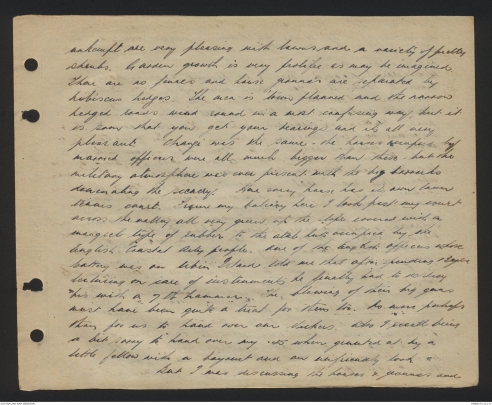 unkempt are very pleasing with lawns and a variety of pretty
shrubs. Garden growth is very prolific as may be imagined.
There are no fences and house grounds are separated by
hibiscus hedges. The area is town planned and the narrow
hedged roads wend round in a most confusing way but it
is soon that you get your bearings and it's all very
pleasant. Changi was the same - the houses occupied by
married officers were all much bigger than these - but the
military atmosphere was ever present with the big barracks
dominating the scenery. Nearly every house has its own lawn
tennis court. From my balcony here I look past my court
across the valley all very green up the slope covered with a
mangled type of rubber to the atap huts occupied by the
English Coastal Arty people. One of the English officers whose
battery was on Blakan I. told me that after spending years
lecturing on care of instruments he finally had to destroy
his with a 7 lb hammer. The blowing of their big guns
must have been quite a trial for them too. As more perhaps
than for us to hand over our rifles. Also I would been
a bit sorry to hand over my .45 when grunted at by a
little fellow with a bayonet and an unfriendly look
But I was discussing the houses & grounds and